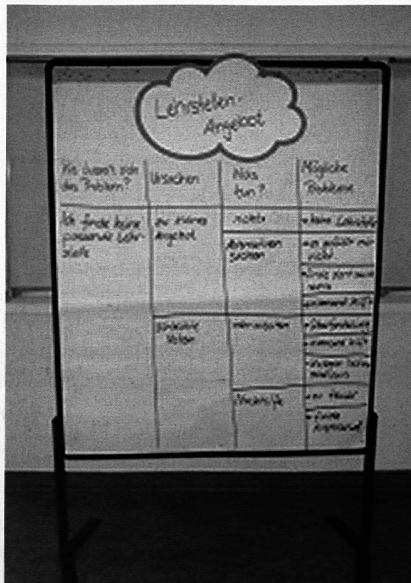 Lehrstellen-
Angebot
Wie äussert sich
das Problem?
Ursachen
Was
tun?
Mögliche
Probleme
Ich finde keine
passende Lehr-
stelle
zu kleines
Angebot
nichts
keine Lehrstelle
Alternativen
suchen
es gefällt mir
nicht
niemand hilft
schlechte
Noten
mehr arbeiten
Überforderung
niemand hilft
Nachhilfe
zu teuer
finde
niemand